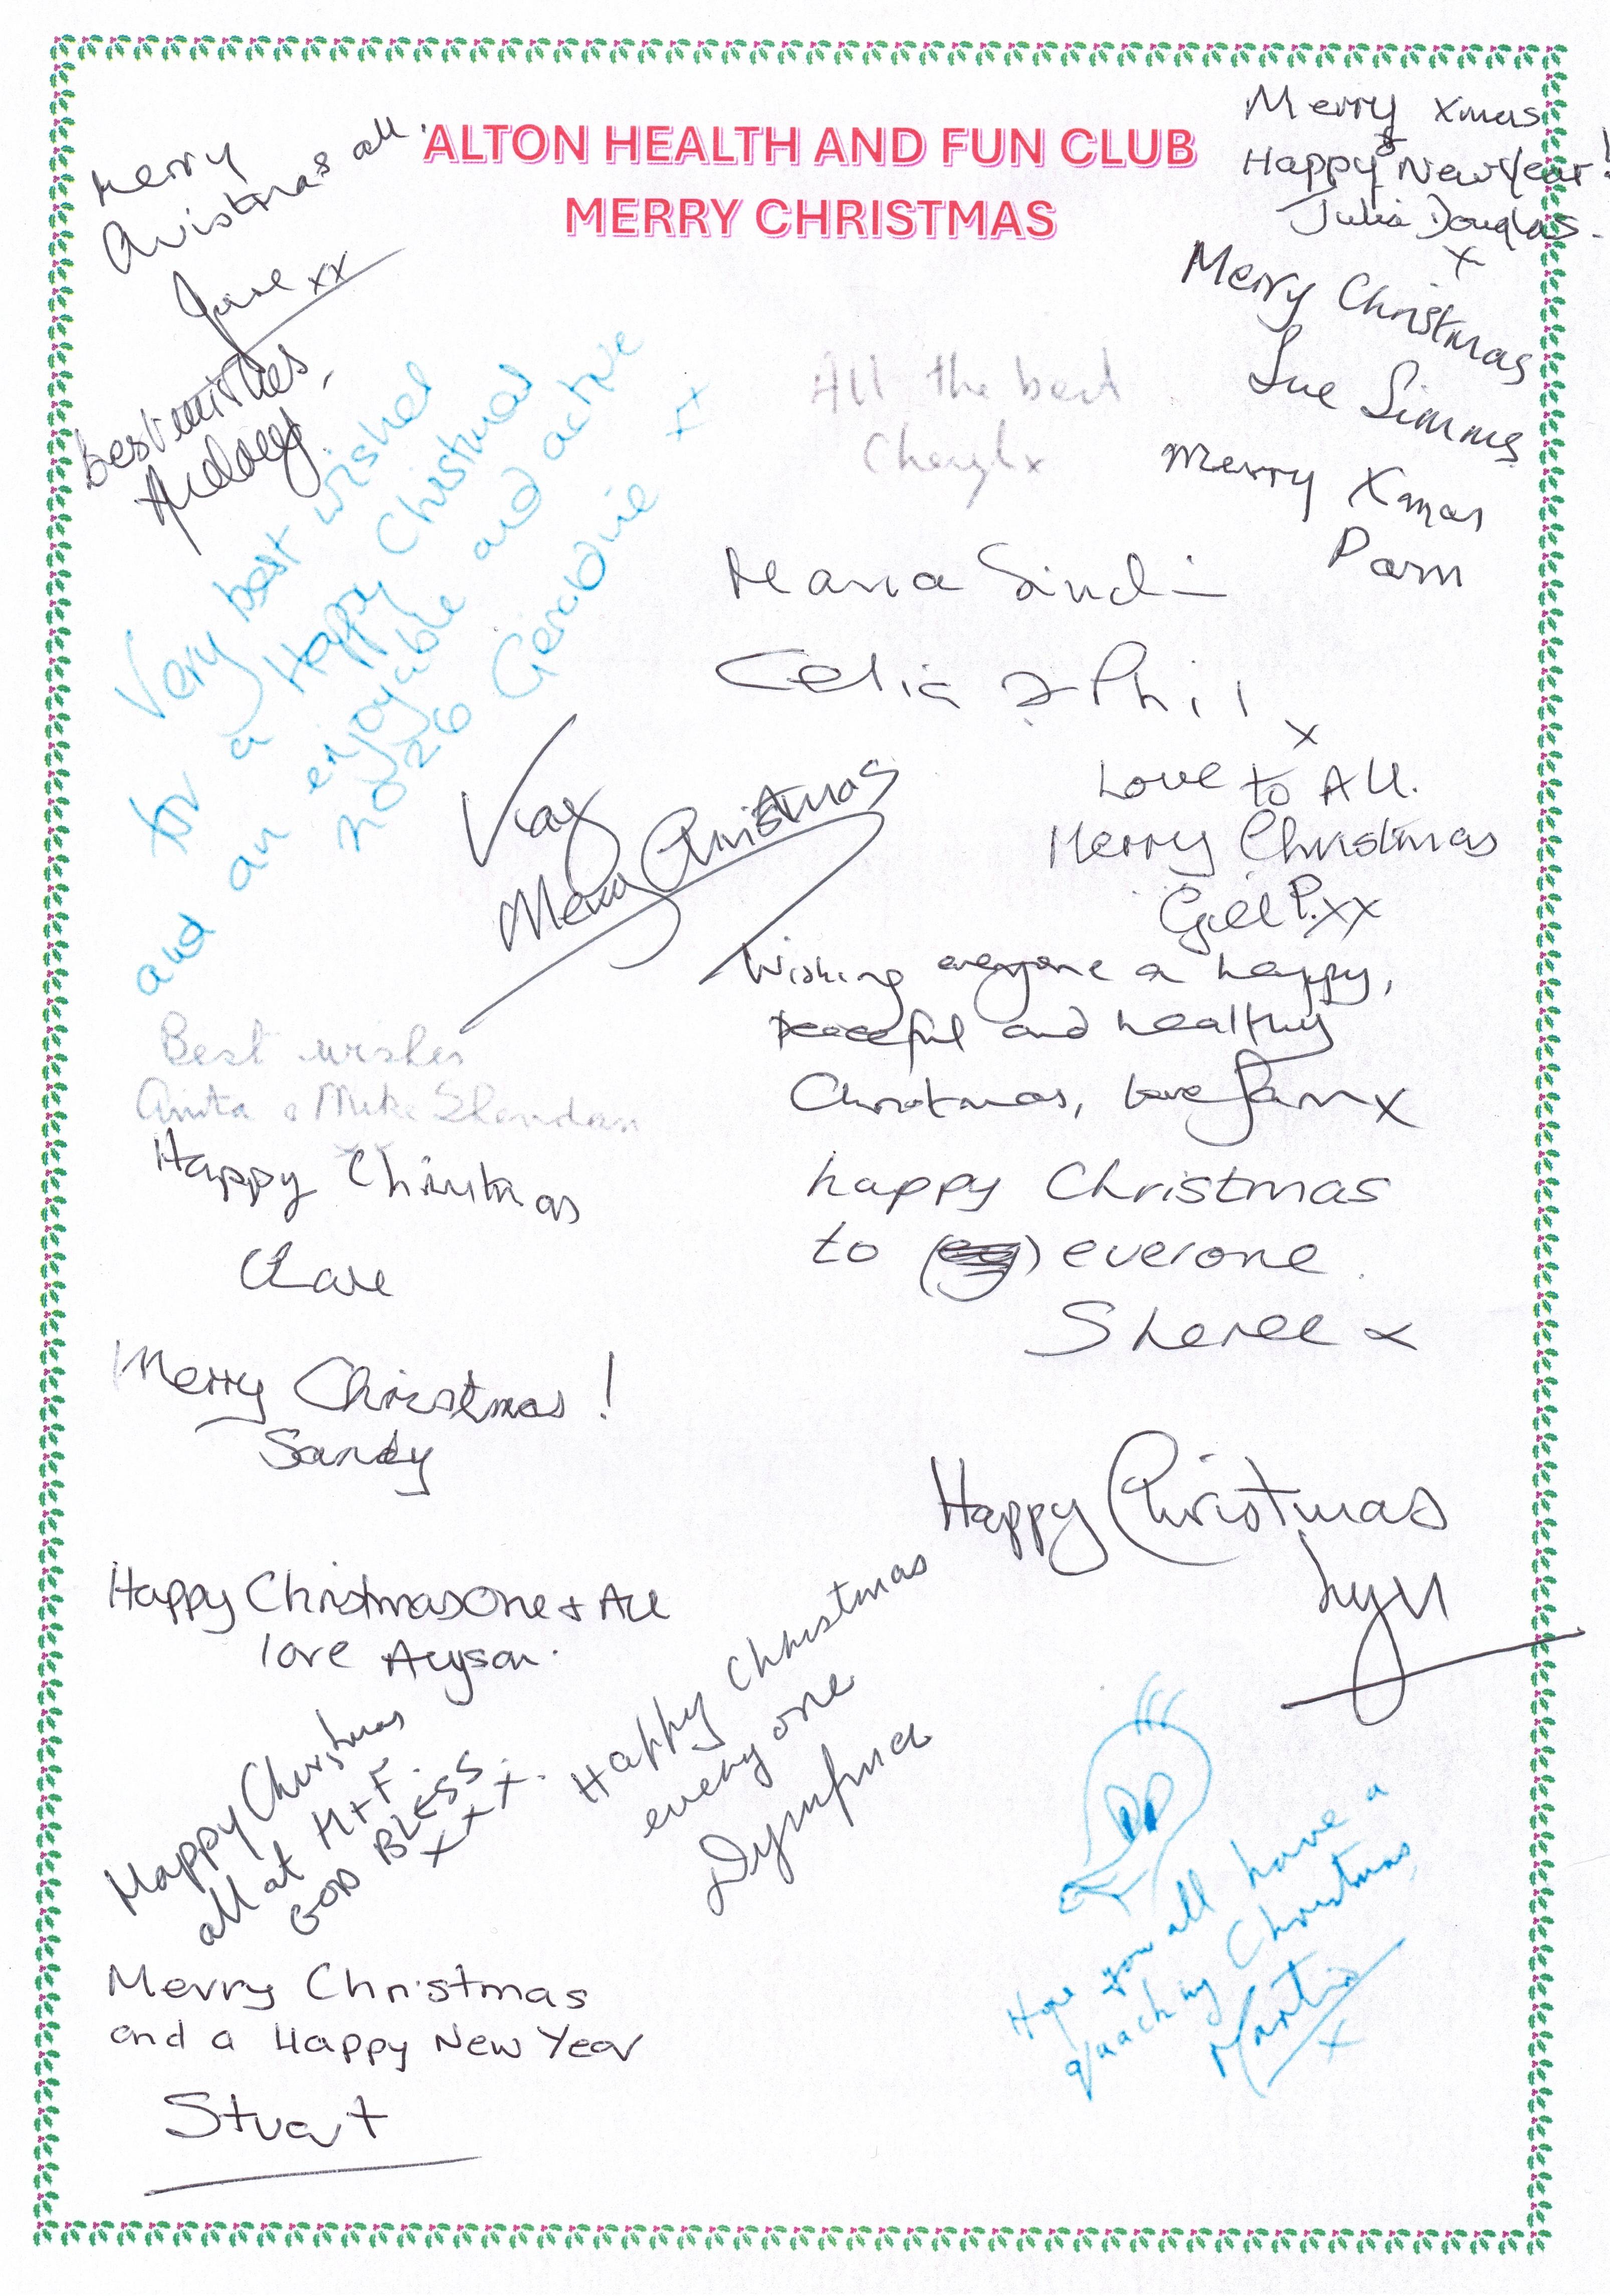 ALTON HEALTH AND FUN CLUB
MERRY CHRISTMAS
Merry
Christmas all.
Jane xx
best wishes,
Audrey
Merry Xmas
&
Happy New Year!
Julia Douglas.
x
Merry Christmas
Sue Simms
Merry Xmas
Pam
All the best
Cheryl x
Very best wishes
for a Happy Christmas
and an enjoyable and active
2026 Geraldine xx
Maria
Celia & Phil
x
Love to All.
Merry Christmas
Gill P. xx
Merry Christmas
Wishing everyone a happy,
peaceful and healthy
Christmas, love Pam x
Best wishes
Anita & Mike Sheridan
Happy Christmas
Clare
happy Christmas
to everone
Sheree x
Merry Christmas!
Sandy
Happy Christmas
Lyn
Happy Christmas One & All
love Alyson.
Happy Christmas
all at H+F.
GOD BLESS
xxx.
Happy Christmas
every one
Dympna
Hope you all have a
quacking Christmas,
Martin
x
Merry Christmas
and a Happy New Year
Stuart